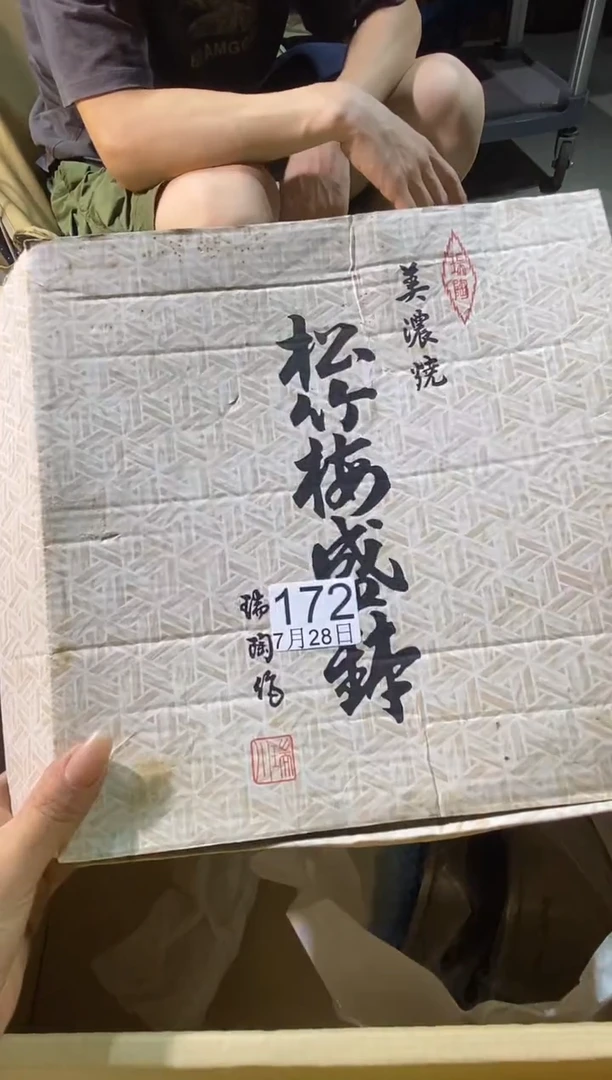 瑞陶
美濃焼
松竹梅盛鉢
瑞陶作
172
7月28日